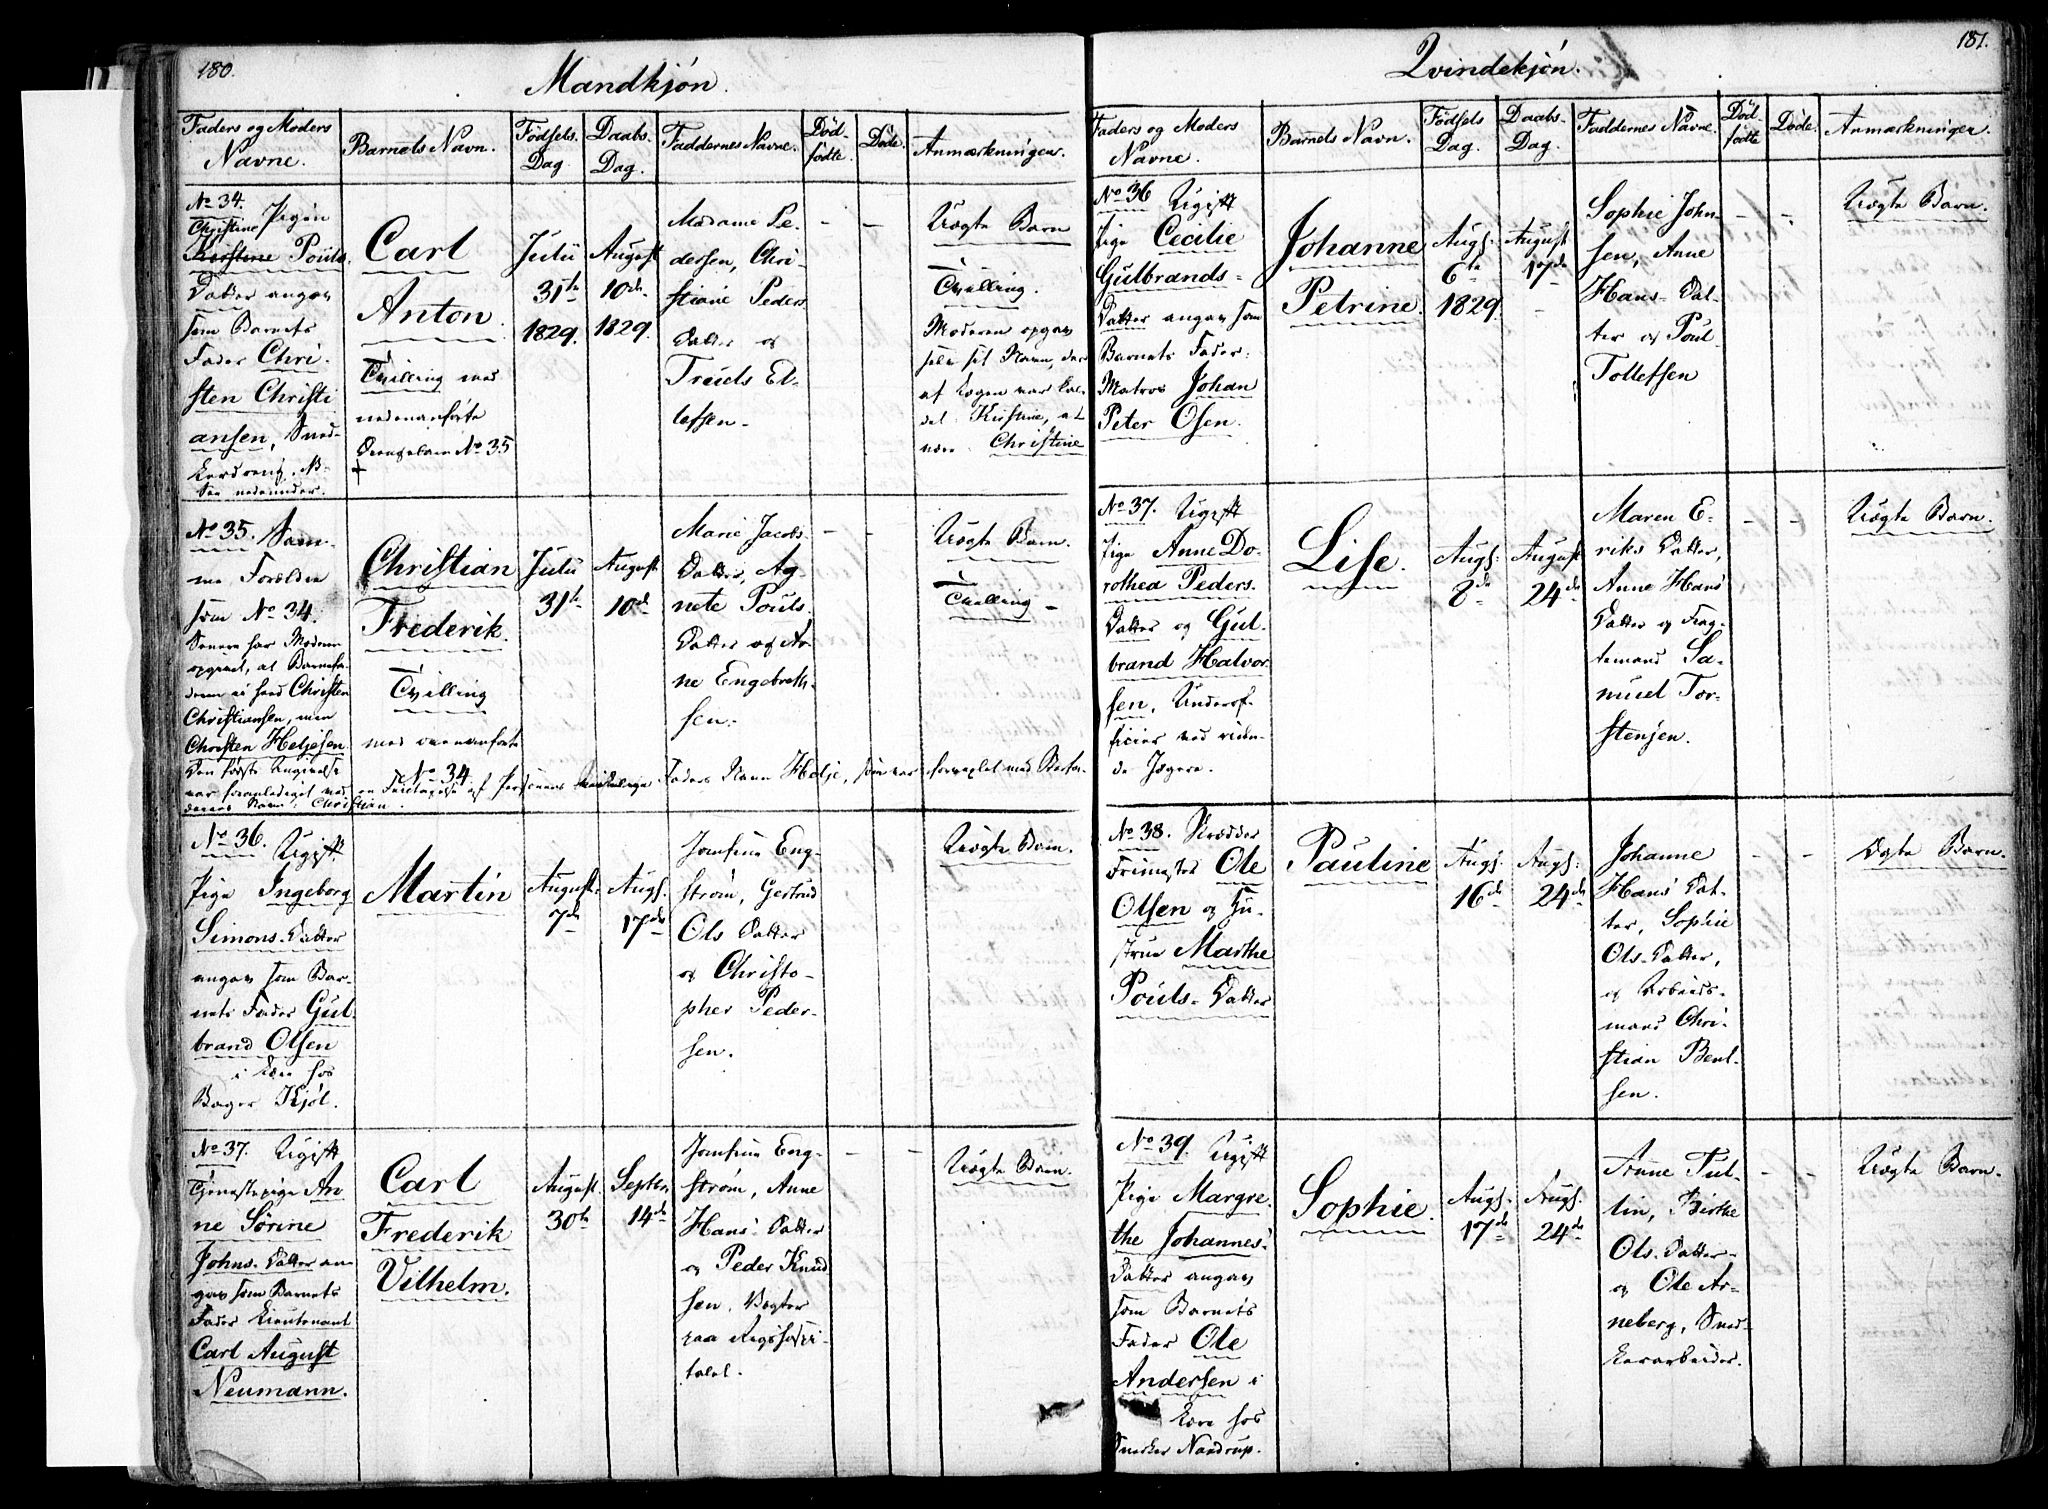 180.
Mandkjøn.
Faders og Moders
Navne.
Barnets Navn.
Fødsels
Dag
Daabs
Dag.
Faddernes Navne.
Død-
fødte.
Døde.
Anmærkninger.
No 34.
Christine Pigen
Kirstine Pouls
Datter angav
som Barnets
Fader Chri-
sten Christi
ansen, Sned-
See nedenunder.
Carl
Anton.
Tvilling med
nedenanførte
Drengebarn No 35
+
Julii
31te
1829.
August
10de
1829.
Madame Pe-
dersen, Chri-
stiane Peders
Datter og
Truels El-
lefsen.
-
-
Uægte Barn
Tvilling.
Moderen opgav
selv sit Navn, der
af Bogen var kal-
det: Kirstine, at
være: Christine
No 35. Sam-
me Forældre
som No 34.
Senere har Moderen
opgivet, at Barnefa-
deren ei hed Christen
Christiansen, men
Christen Heljesen.
Den første Angivelse
var foranlediget ved
Christian
Frederik.
Tvilling
med ovenanførte
No 34.
Julii
31te
August
10de
Marie Jacobs
Datter, Ag-
nete Pouls.
Datter og Ar-
ne Engebreth-
sen.
-
-
Uægte Barn.
Tvilling
Faders Navn Helje, som var forvexlet med
Navn: Christian.
No 36. Ugift
Pige Ingeborg
Simons-Datter
angav som Bar-
nets Fader Gul-
brand Olsen
i Lære hos
Bager Kjøl.
Martin
August.
7de
Augs.
17de
Jomfrue Eng-
strøm, Gertrud
Ols Datter
og Christo-
pher Peder-
sen.
Uægte Barn.
No 37. Ugift
Tjenestepige An
ne Sørine
Johns-Datter an-
gav som Barnets
Fader Lieutenant
Carl August
Neumann.
Carl
Frederik
Vilhelm.
August.
30te
Septbr.
14de
Jomfrue Eng-
strøm, Anne
Hans' Datter
og Peder Knud
sen, Vægter
paa Rigshospi-
talet.
-
-
Uægte Barn.
181.
Qvindekjøn.
Faders og Moders
Navne.
Barnets Navn.
Fødsels
Dag.
Daabs-
Dag.
Faddernes Navne.
Død-
fødte
Døde.
Anmærkninger.
No 36 Ugift
Pige Cecilie
Gulbrands-
Datter angav som
Barnets Fader:
Matros Johan
Peter Olsen.
Johanne
Petrine.
Augs.
6te
1829.
August
17de
-
Sophie John-
sen, Anne
Hans-Dat-
ter og Poul
Tollefsen
-
-
Uægte Barn.
No 37. Ugift
Pige Anne Do-
rothea Peders.
Datter og Gul-
brand Halvor
sen, Underof-
ficier ved riden-
de Jægere.
Lise.
Augs.
8de
August
24de
Maren E-
riks Datter,
Anne Hans'
Datter og Frag-
temand Sa-
muel Tor-
stensen.
-
-
Uægte Barn.
No 38. Skrædder
Frimester Ole
Olsen og Hu-
strue Marthe
Pouls-Datter
Pauline
Augs.
16de
Augs:
24de
Johanne
Hans' Dat-
ter, Sophie
Ols-Datter,
og Arbeids-
mand Chri-
stian Bent-
sen.
-
-
Ægte Barn.
No 39. Ugift
Pige Margre-
the Johannes'-
Datter angav
som Barnets
Fader Ole
Andersen i
Lære hos
Snedker Nandrup.
Sophie.
Augs.
17de
Augs.
24de
Anne Tul-
lin, Birthe
Ols-Datter-
og Ole Ar-
neberg, Sned-
kerarbeider.
-
-
Uægte Barn.